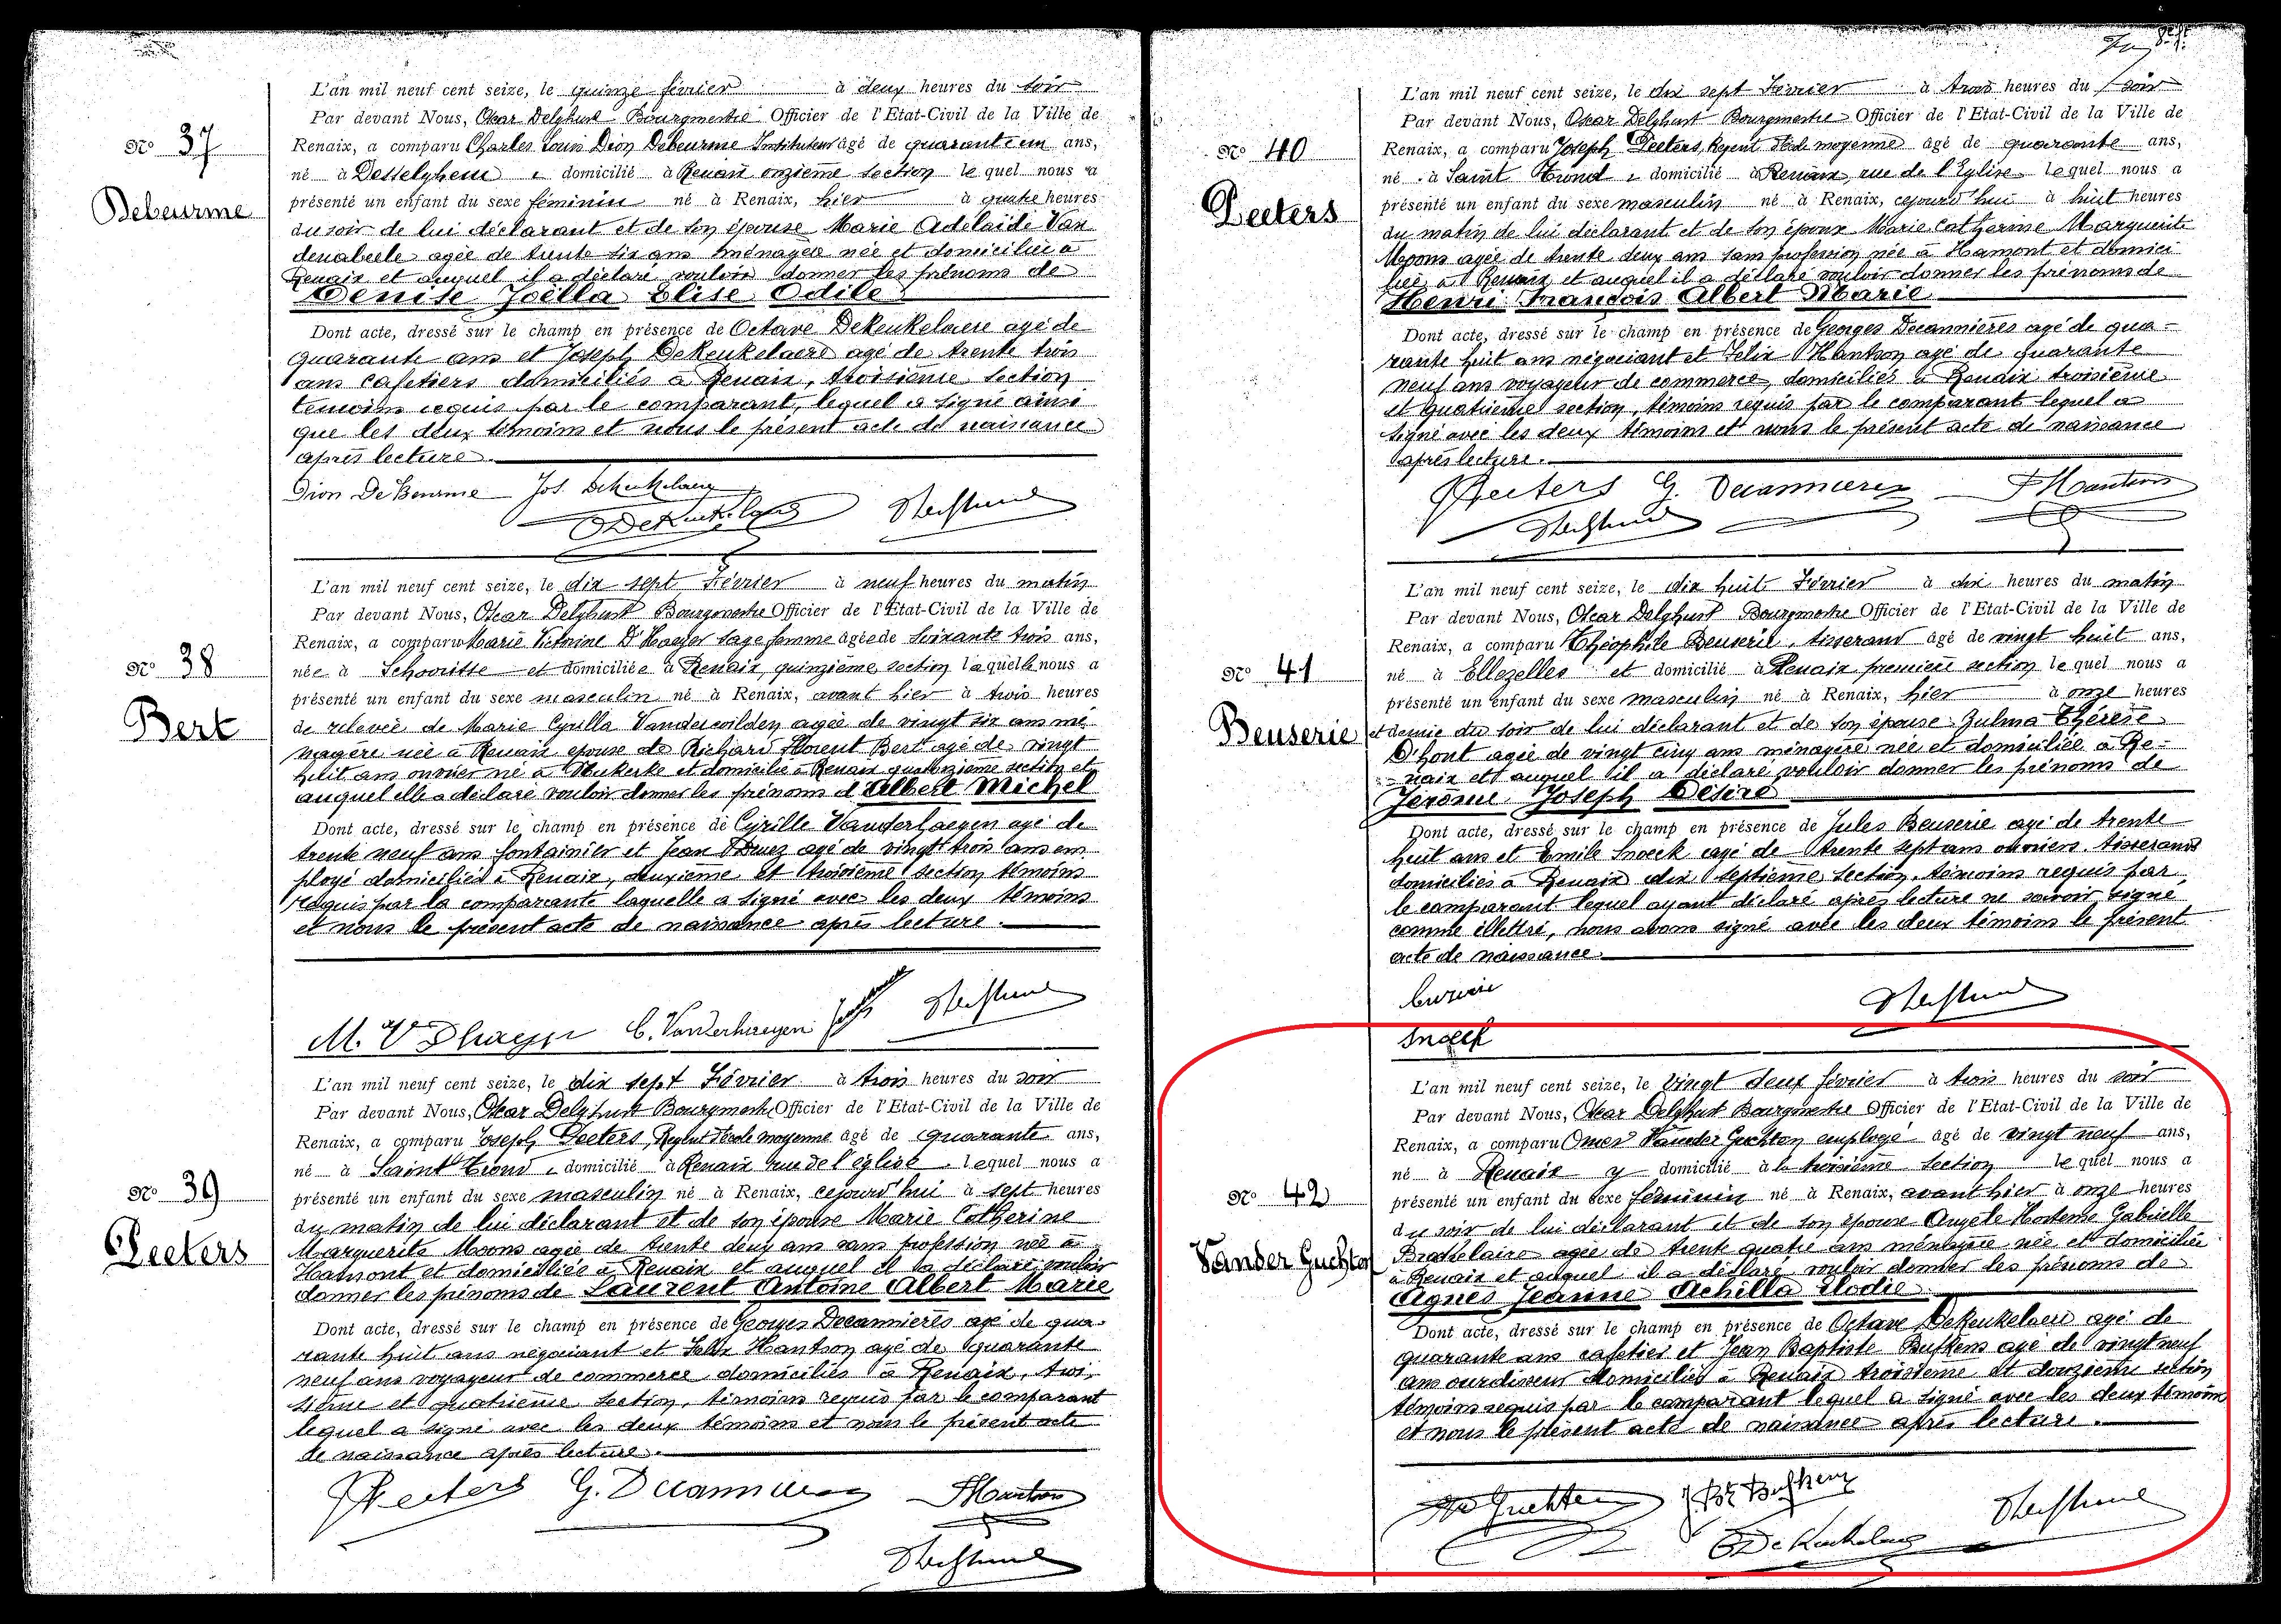 L'an mil neuf cent seize, le quinze février à deux heures du soir
Par devant Nous, Oscar Delghust Bourgmestre Officier de l'Etat-Civil de la Ville de
Nº 37
Renaix, a comparu Charles Louis Dion Debeurme Instituteur âgé de quarante un ans,
né à Desselghem, domicilié à Renaix onzième section lequel nous a
Debeurme
présenté un enfant du sexe féminin né à Renaix, hier à quatre heures
du soir de lui déclarant et de son épouse Marie Adelaïde Van
denabeele agée de trente six ans ménagère née et domiciliée à
Renaix et auquel il a déclaré vouloir donner les prénoms de
Denise Joëlla Elise Odile
Dont acte, dressé sur le champ en présence de Octave DeKeukelaere agé de
quarante ans et Joseph DeKeukelaere agé de trente trois
ans cafetiers domiciliés à Renaix, troisième section
témoins requis par le comparant, lequel a signé ainsi
que les deux témoins et nous le présent acte de naissance
après lecture.
Dion DeBeurme Jos. DeKeukelaere
O DeKeukelaere
L'an mil neuf cent seize, le dix sept Février à neuf heures du matin
Par devant Nous, Oscar Delghust Bourgmestre Officier de l'Etat-Civil de la Ville de
Renaix, a comparu Marie Victorine D'Haeyer sage femme âgée de soixante trois ans,
Nº 38
née à Schoorisse et domiciliée à Renaix, quinzième section laquelle nous a
présenté un enfant du sexe masculin né à Renaix, avant hier à trois heures
Bert
de relevée de Marie Cyrilla Vanderwilden agée de vingt six ans mé
nagère née à Renaix épouse de Richard Florent Bert agé de vingt
huit ans ouvrier né à Nukerke et domicilié à Renaix quatorzième section et
auquel elle a déclaré vouloir donner les prénoms d'Albert Michel
Dont acte, dressé sur le champ en présence de Cyrille Vanderhaegen agé de
trente neuf ans fontainier et Jean agé de vingt trois ans em
ployé domiciliés à Renaix, deuxième et troisième section témoins
requis par la comparante laquelle a signé avec les deux témoins
et nous le présent acte de naissance après lecture.
M. Vve Dhaeyer C. Vanderhaegen
L'an mil neuf cent seize, le dix sept Février à trois heures du soir
Par devant Nous, Oscar Delghust Bourgmestre Officier de l'Etat-Civil de la Ville de
Renaix, a comparu Joseph Peeters, Régent Ecole moyenne âgé de quarante ans,
né à Saint Trond, domicilié à Renaix rue de l'église lequel nous a
Nº 39
présenté un enfant du sexe masculin né à Renaix, cejourd'hui à sept heures
du matin de lui déclarant et de son épouse Marie Catherine
Peeters
Marguerite Moons agée de trente deux ans sans profession née à
Hamont et domiciliée à Renaix et auquel il a déclaré vouloir
donner les prénoms de Laurent Antoine Albert Marie
Dont acte, dressé sur le champ en présence de Georges Decannières agé de qua-
rante huit ans négociant et Felix Hantson agé de quarante
neuf ans voyageur de commerce domiciliés à Renaix, troi
sième et quatrième section, témoins requis par le comparant
lequel a signé avec les deux témoins et nous le présent acte
de naissance après lecture.
JPeeters G. Decannieres FHantson
L'an mil neuf cent seize, le dix sept Février à trois heures du soir
Par devant Nous, Oscar Delghust Bourgmestre Officier de l'Etat-Civil de la Ville de
Nº 40
Renaix, a comparu Joseph Peeters, Régent Ecole moyenne âgé de quarante ans,
né à Saint Trond, domicilié à Renaix, rue de l'Eglise lequel nous a
Peeters
présenté un enfant du sexe masculin né à Renaix, cejourd'hui à huit heures
du matin de lui déclarant et de son épouse Marie Catherine Marguerite
Moons agée de trente deux ans sans profession née à Hamont et domici
liée à Renaix et auquel il a déclaré vouloir donner les prénoms de
Henri François Albert Marie
Dont acte, dressé sur le champ en présence de Georges Decannières agé de qua-
rante huit ans négociant et Felix Hantson agé de quarante
neuf ans voyageur de commerce, domiciliés à Renaix troisième
et quatrième section, témoins requis par le comparant lequel a
signé avec les deux témoins et nous le présent acte de naissance
après lecture.
JPeeters G. Decannieres FHantson
L'an mil neuf cent seize, le dix huit Février à dix heures du matin
Par devant Nous, Oscar Delghust Bourgmestre Officier de l'Etat-Civil de la Ville de
Renaix, a comparu Théophile Beuserie, tisserand âgé de vingt huit ans,
Nº 41
né à Ellezelles et domicilié à Renaix première section lequel nous a
présenté un enfant du sexe masculin né à Renaix, hier à onze heures
Beuserie
et demie du soir de lui déclarant et de son épouse Zulma Thérèse
D'hont agée de vingt cinq ans ménagère née et domiciliée à Re-
naix et auquel il a déclaré vouloir donner les prénoms de
Jérôme Joseph Désiré
Dont acte, dressé sur le champ en présence de Jules Beuserie agé de trente
huit ans et Emile Snoeck agé de trente sept ans ouvriers tisserands
domiciliés à Renaix dix septième section, témoins requis par
le comparant lequel ayant déclaré après lecture ne savoir signé
comme illettré, nous avons signé avec les deux témoins le présent
acte de naissance.
Snoeck
L'an mil neuf cent seize, le vingt deux février à trois heures du soir
Par devant Nous, Oscar Delghust Bourgmestre Officier de l'Etat-Civil de la Ville de
Renaix, a comparu Omer Vander Guchten employé âgé de vingt neuf ans,
né à Renaix y domicilié à la troisième section lequel nous a
Nº 42
présenté un enfant du sexe féminin né à Renaix, avant hier à onze heures
du soir de lui déclarant et de son épouse Angèle Hortense Gabrielle
Vander Guchten
Braekelaire agée de trente quatre ans ménagère née et domiciliée
à Renaix et auquel il a déclaré vouloir donner les prénoms de
Agnès Jeanne Achilla Elodie
Dont acte, dressé sur le champ en présence de Octave DeKeukelaere agé de
quarante ans cafetier et Jean Baptiste Buftens agé de vingt neuf
ans ourdisseur domiciliés à Renaix troisième et douzième section
témoins requis par le comparant lequel a signé avec les deux témoins
et nous le présent acte de naissance après lecture.
O DeKeukelaere